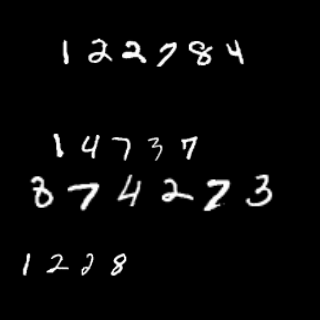 122784
14737
874273
1228